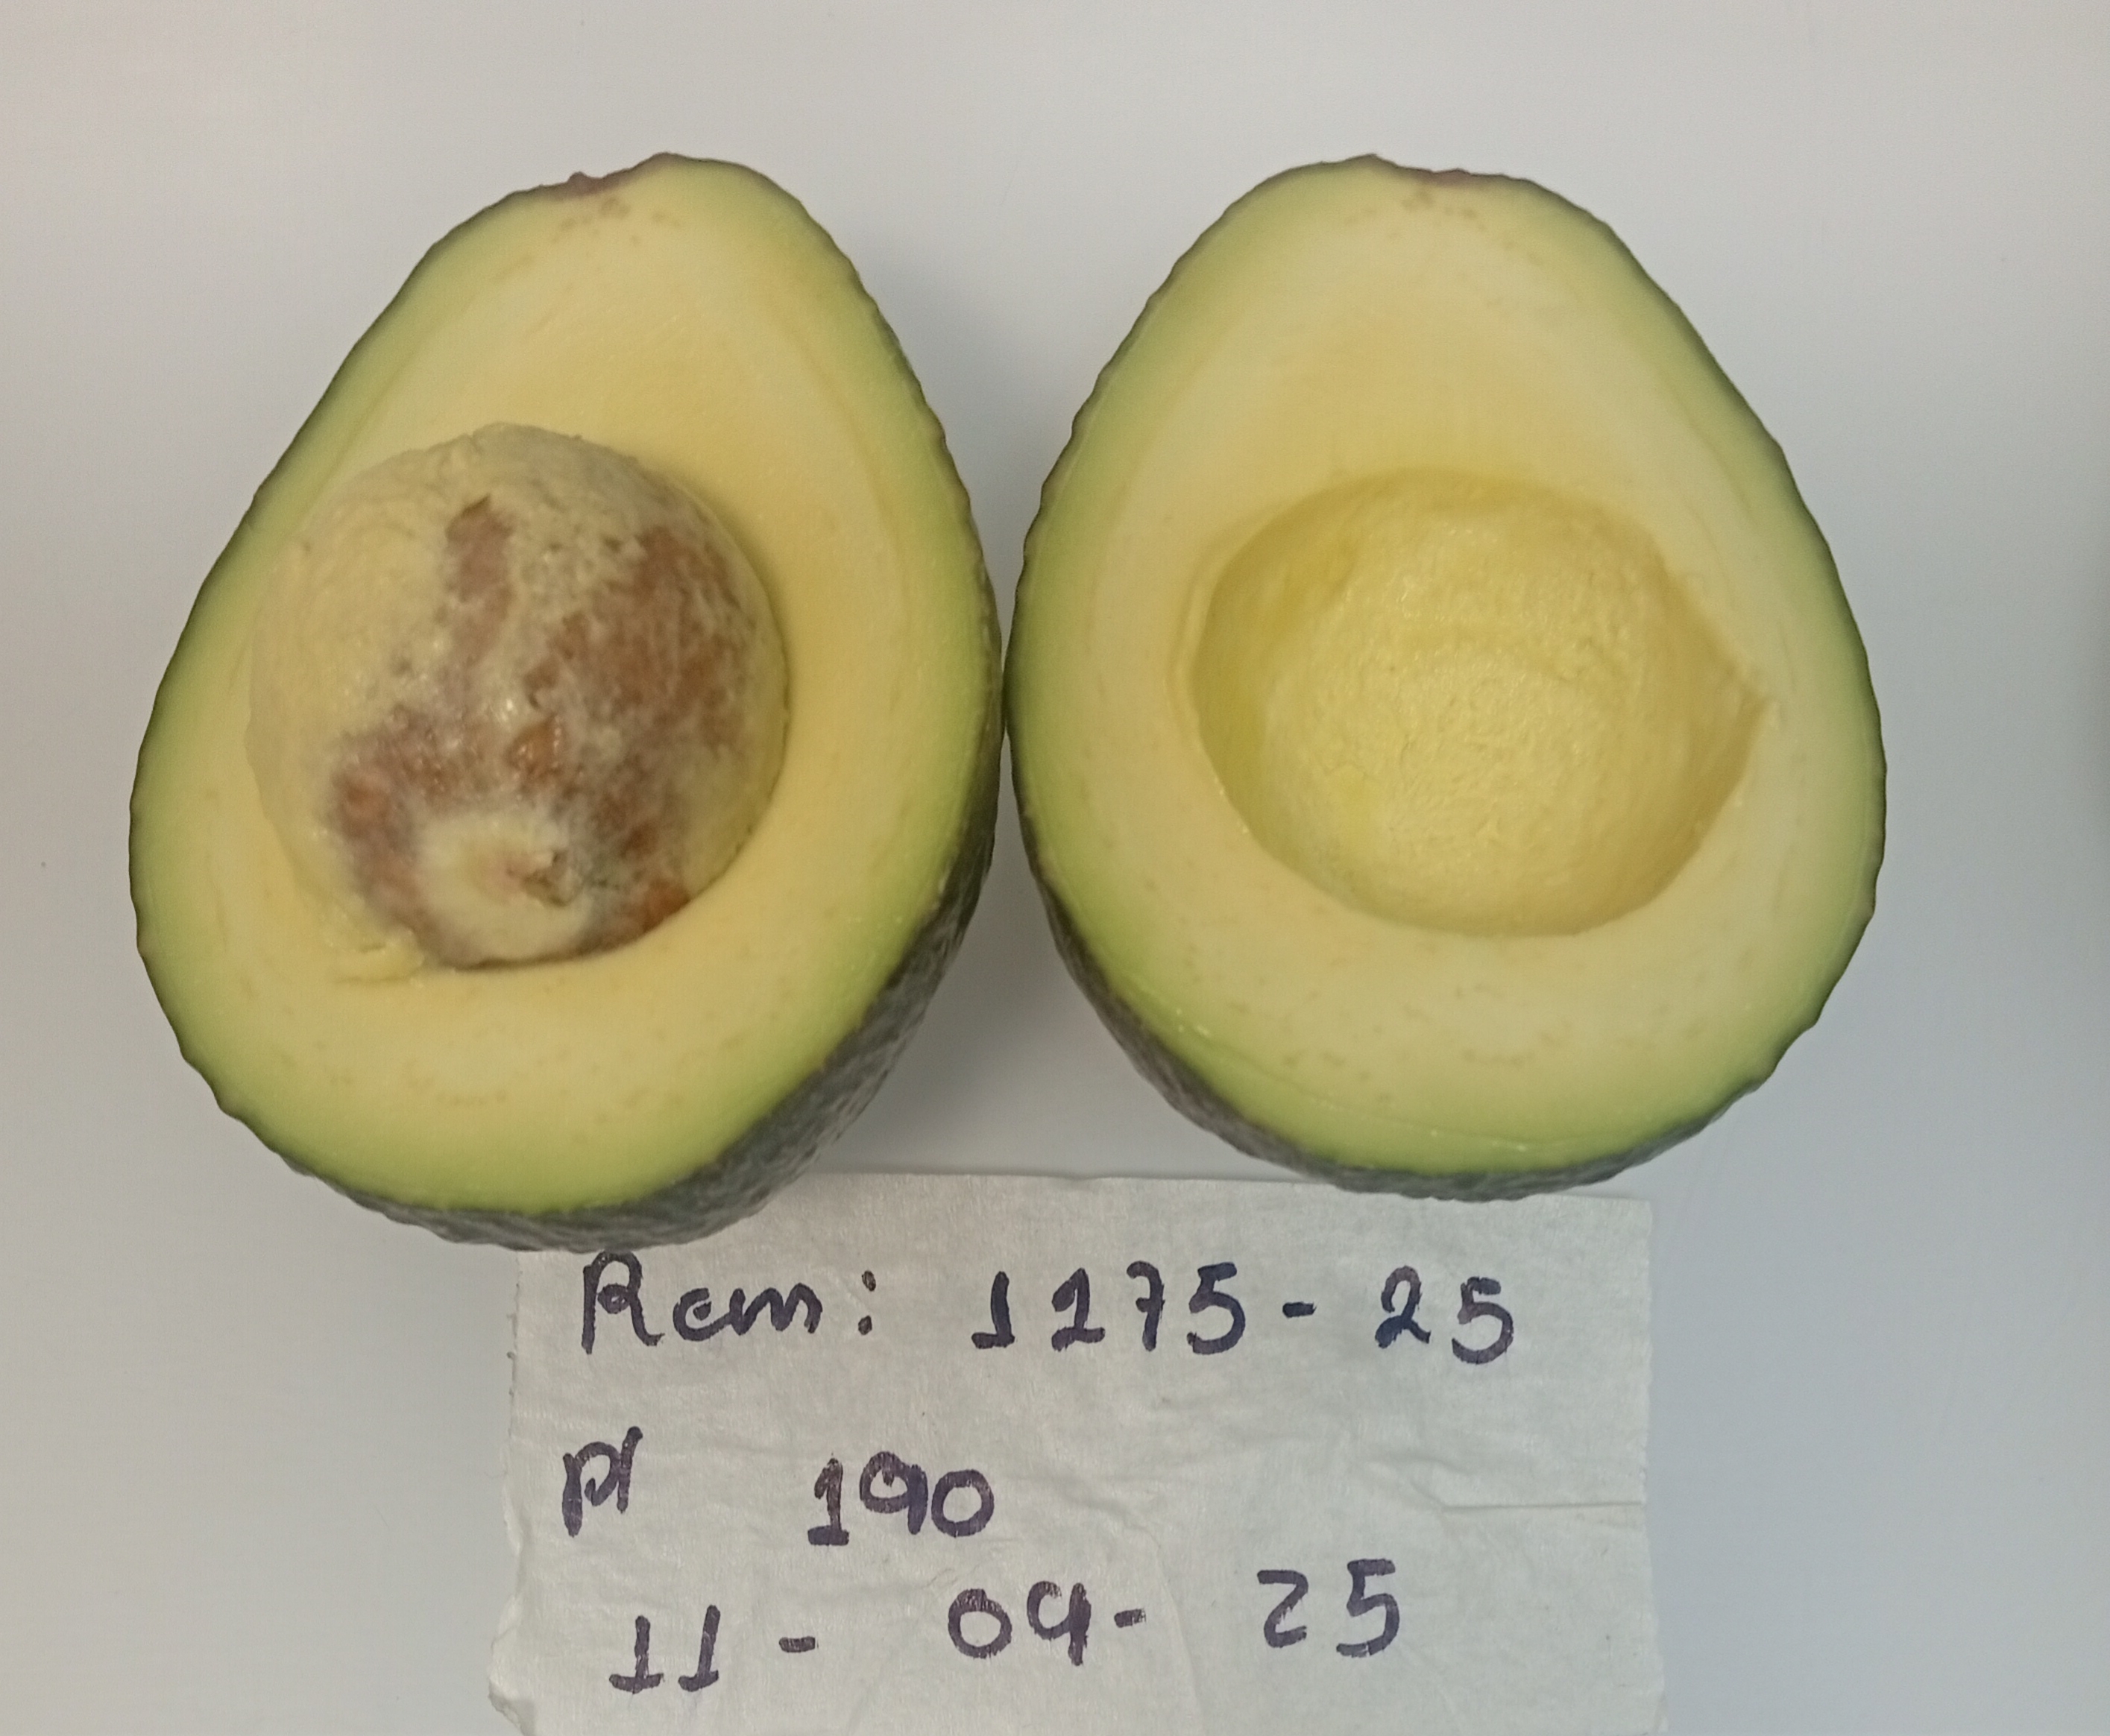 Rem: 1275-25
Pl 190
11-09-25